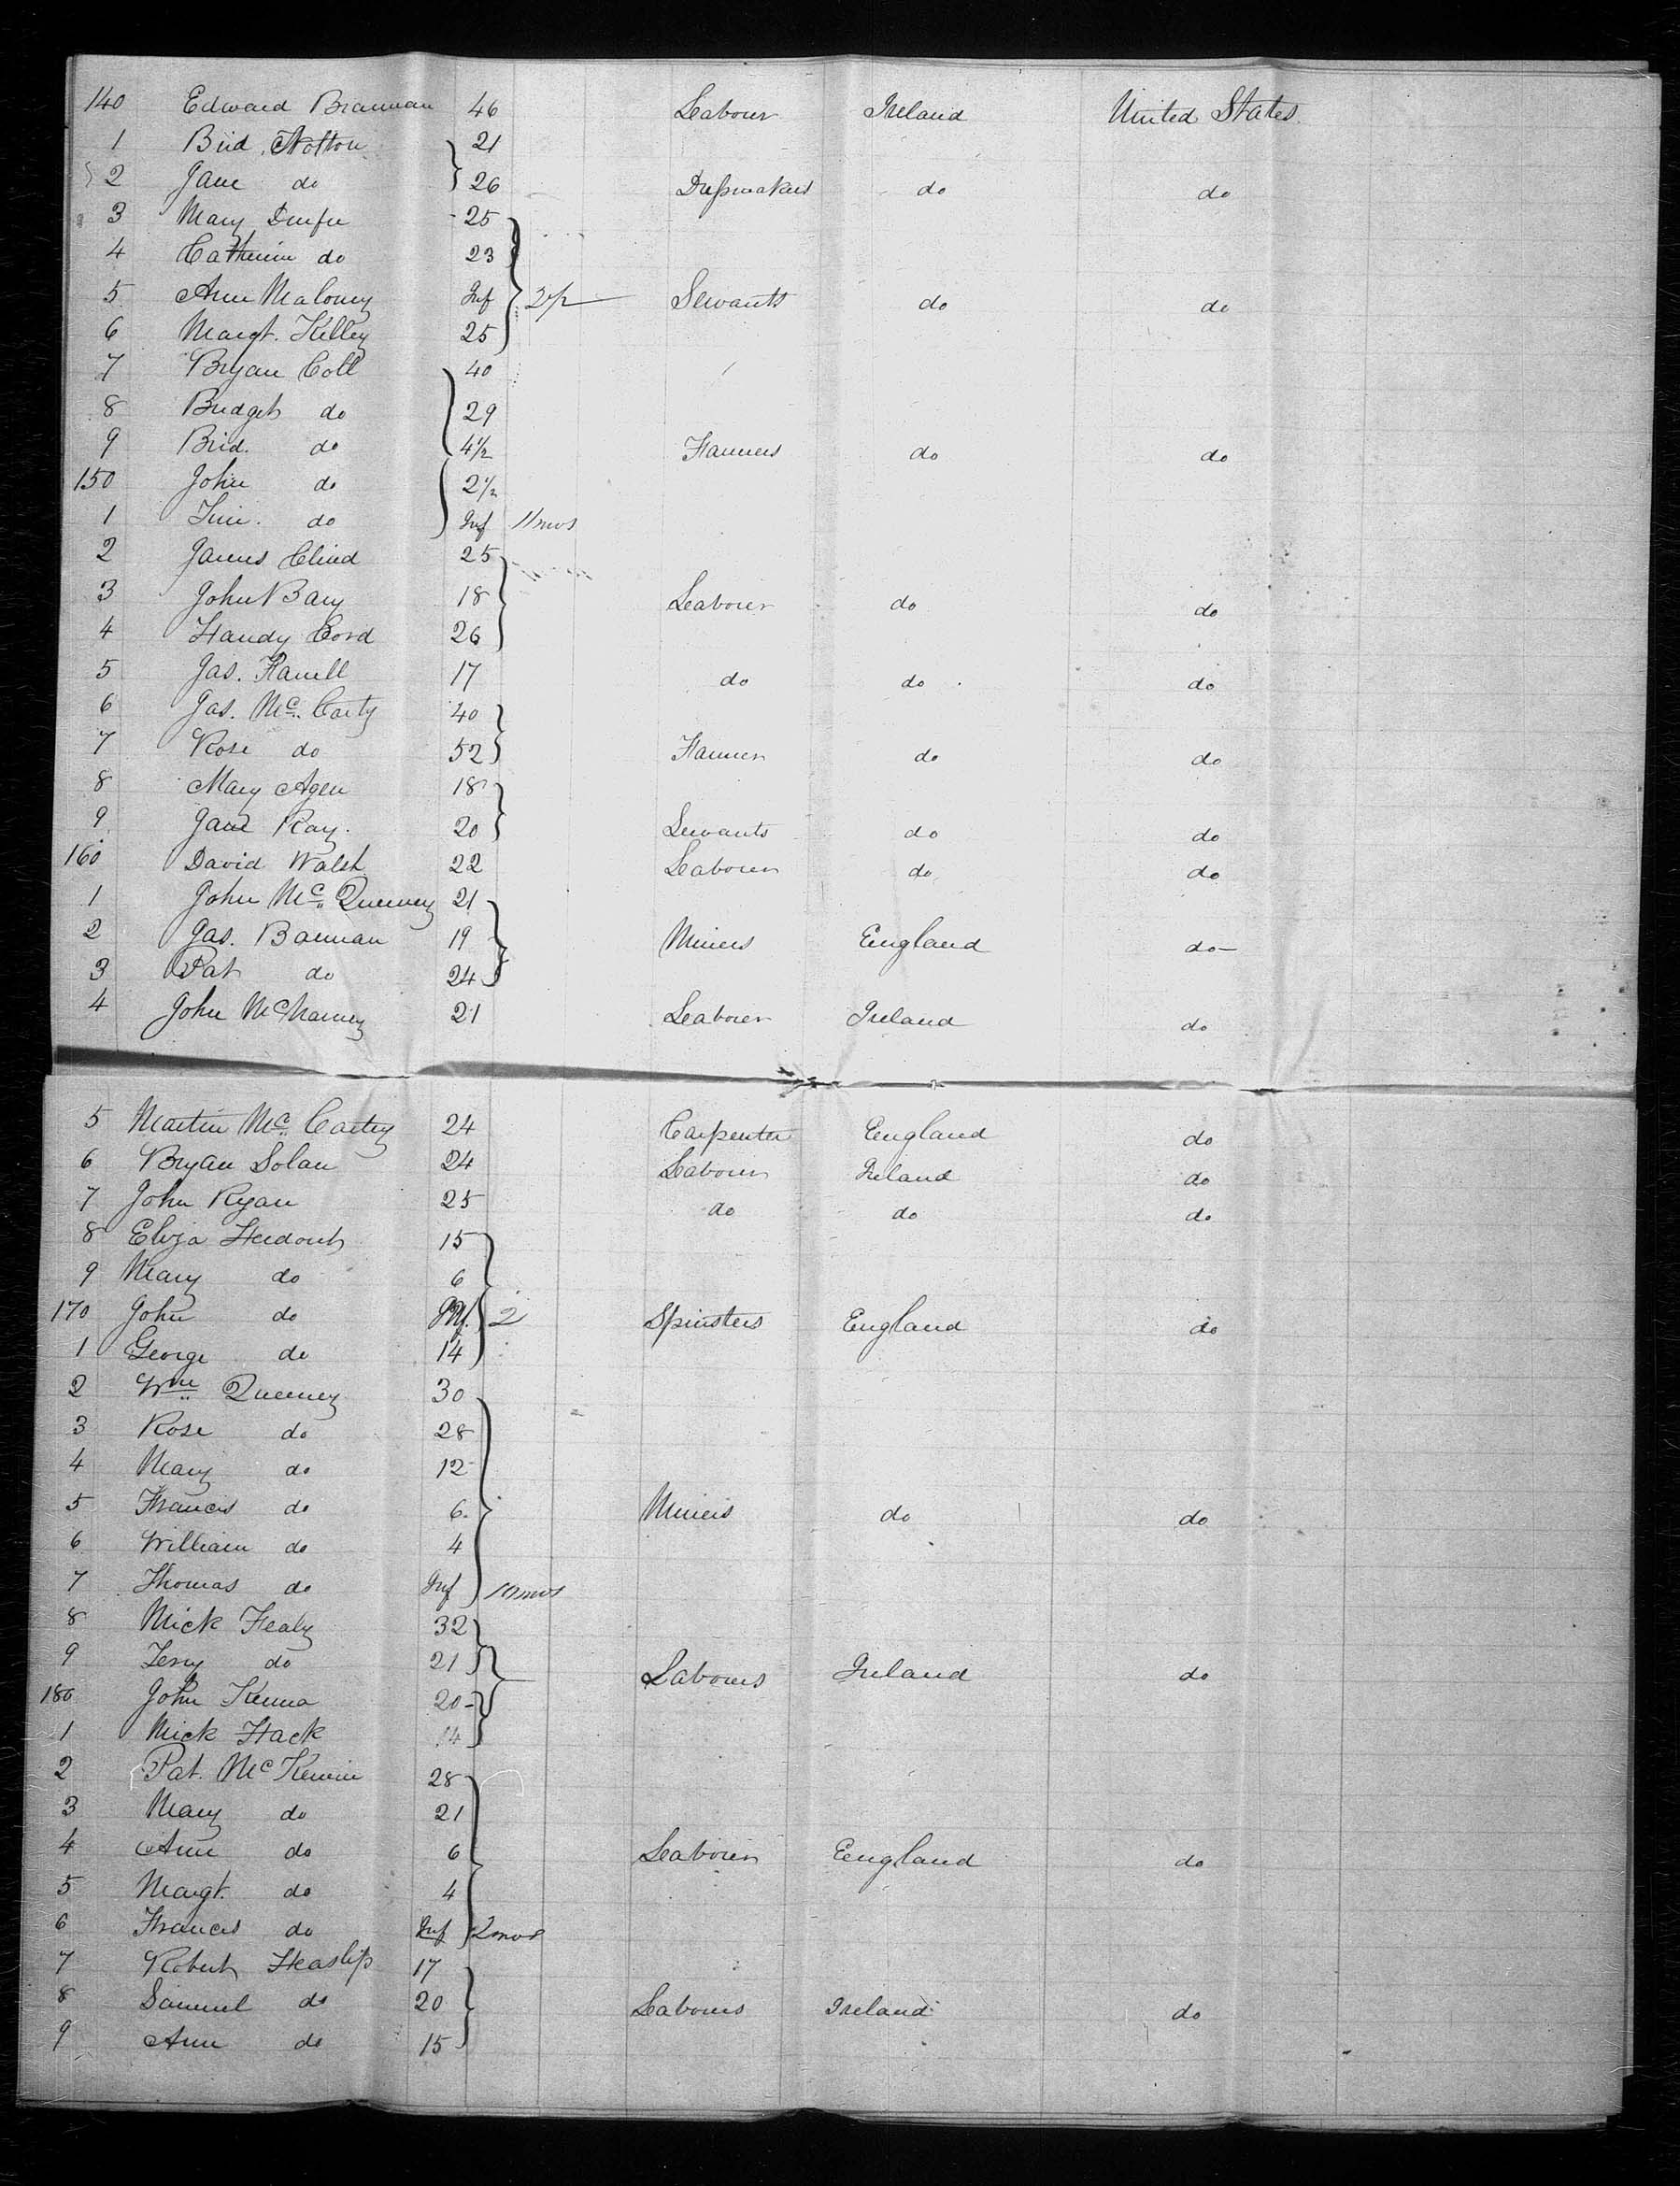 140 Edward Brannan 46 Labour Ireland United States.
1 Brid. Notton 21
2 Jane do 26 Dressmakers do do
3 Mary 25
4 Catherine do 23
5 Ann Maloney Inf Servants do do
6 Margt. Kelley 25
7 Bryan Coll 40
8 Bridget do 29
9 Brid. do 4½ Farmers do do
150 John do 2½
1 do Inf 11mos
2 James 25
3 John Bary 18 Labourer do do
4 Handy Cord 26
5 Jas. Farrell 17 do do do
6 Jas. Mc. Carty 40
7 Rose do 52 Farmer do do
8 Mary Agen 18
9 Jane Ray. 20 Servants do do
160 David Walsh 22 Labourer do do
1 John Mc. Queeney 21
2 Jas. Bannan 19 Miners England do
3 Pat do 24
4 John McNamey 21 Labourer Ireland do
5 Martin Mc. Cartey 24 Carpenter England do
6 Bryan Solan 24 Labourer Ireland do
7 John Ryan 25 do do do
8 Eliza 15
9 Mary do 6
170 John do Inf. 2 Spinsters England do
1 George do 14
2 Wm Queeney 30
3 Rose do 28
4 Mary do 12
5 Francis do 6. Miners do do
6 William do 4
7 Thomas do Inf 10mos
8 Mick Healy 32
9 Jerry do 21 Labourers Ireland do
180 John Kenna 20
1 Mick Hack 14
2 Pat. Mc 28
3 Mary do 21
4 Ann do 6 Labourer England do
5 Margt. do 4
6 Francis do Inf 2mos
7 Robert Heaslip 17
8 Samuel do 20 Labourers Ireland do
9 Ann do 15